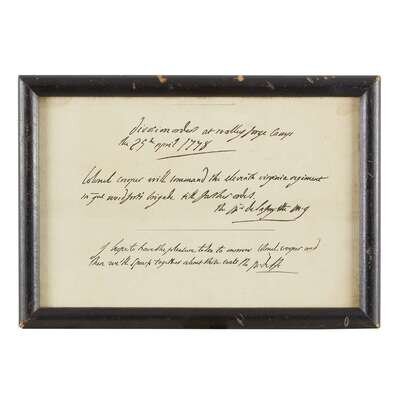 division orders at valley forge Camp
the 25th april 1778
Colonel cropper will command the eleventh virginia regiment
in gnl woodford's brigade till further orders
the Mis de lafayette M G
I hope to have the pleasure to morrow Colonel cropper and
then we'll speak together about the